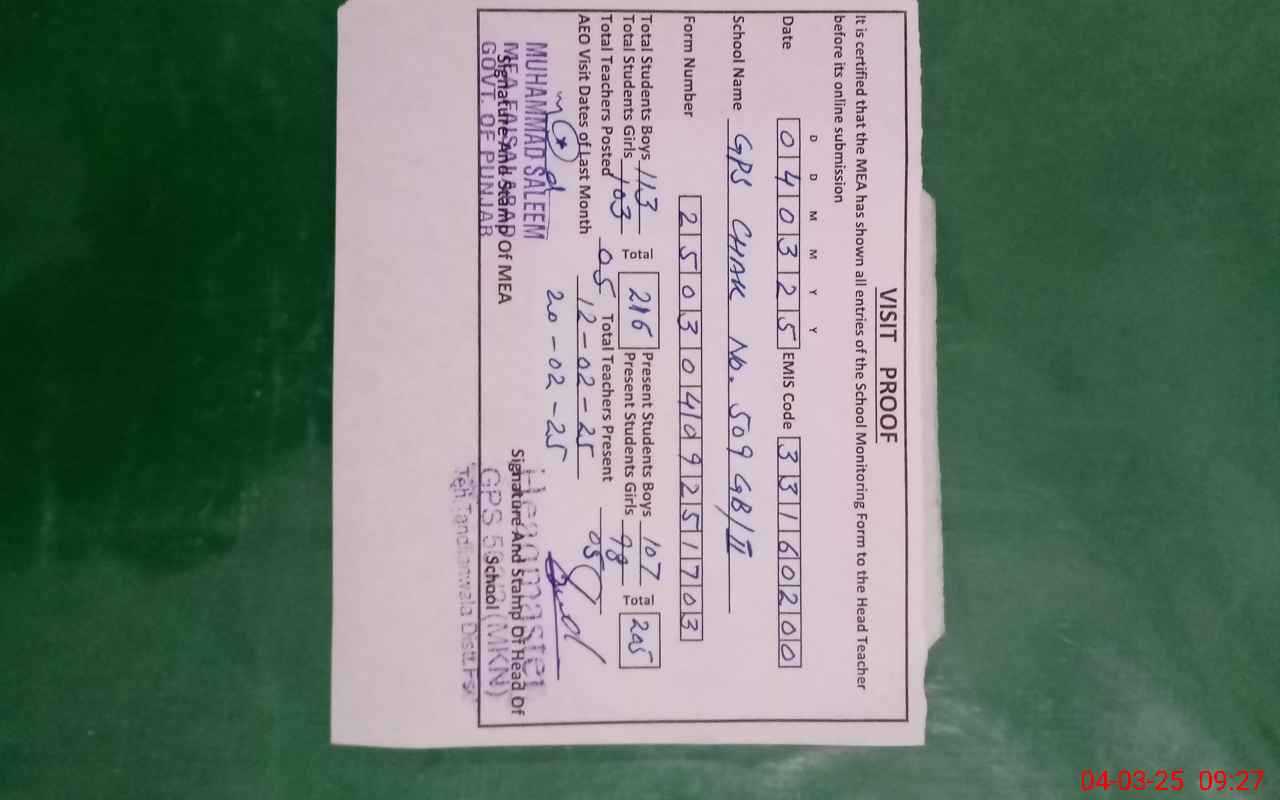 VISIT PROOF
It is certified that the MEA has shown all entries of the School Monitoring Form to the Head Teacher
before its online submission
D D M M Y Y
Date 040325 EMIS Code 33160200
School Name GPS CHAK No. 509 GB/II
Form Number 25030409251703
Total Students Boys 113 Total 216 Present Students Boys 107 Total 205
Total Students Girls 103 Present Students Girls 98
Total Teachers Posted 05 Total Teachers Present 05
AEO Visit Dates of Last Month 12-02-25
20-02-25
MUHAMMAD SALEEM
MEA FAISALABAD
GOVT. OF PUNJAB
Signature And Stamp Of MEA
Signature And Stamp Of Head Of
School
Headmaster
GPS (MKN)
Teh Tandlianwala Distt.
04-03-25 09:27